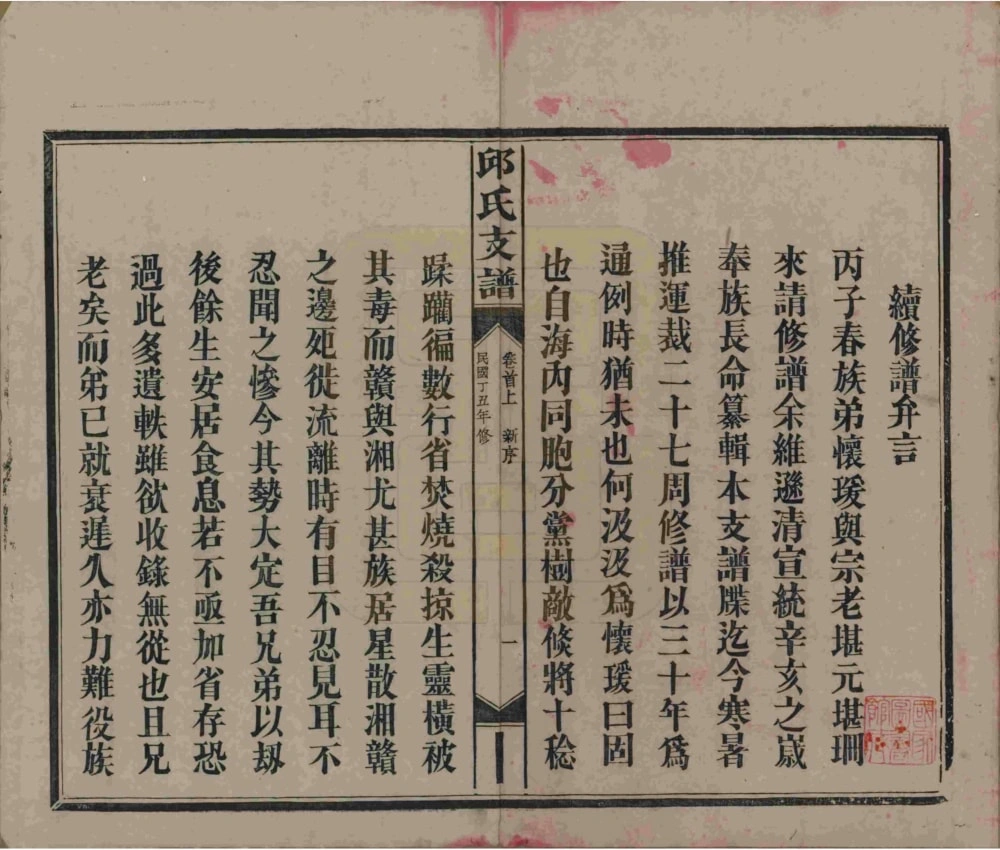 續修譜弁言
丙子春族弟懷瑗與宗老堪元堪珊
來請修譜余維遜清宣統辛亥之歲
奉族長命纂輯本支譜牒迄今寒暑
推運裁二十七周修譜以三十年爲
通例時猶未也何汲汲爲懷瑗曰固
也自海內同胞分黨樹敵倐將十稔
邱氏支譜
卷首上 新序
一
民國丁丑年修
蹂躪徧數行省焚燒殺掠生靈橫被
其毒而贛與湘尤甚族居星散湘贛
之邊死徙流離時有目不忍見耳不
忍聞之慘今其勢大定吾兄弟以刼
後餘生安居食息若不亟加省存恐
過此多遺軼雖欲收錄無從也且兄
老矣而弟巳就衰遲久亦力難役族